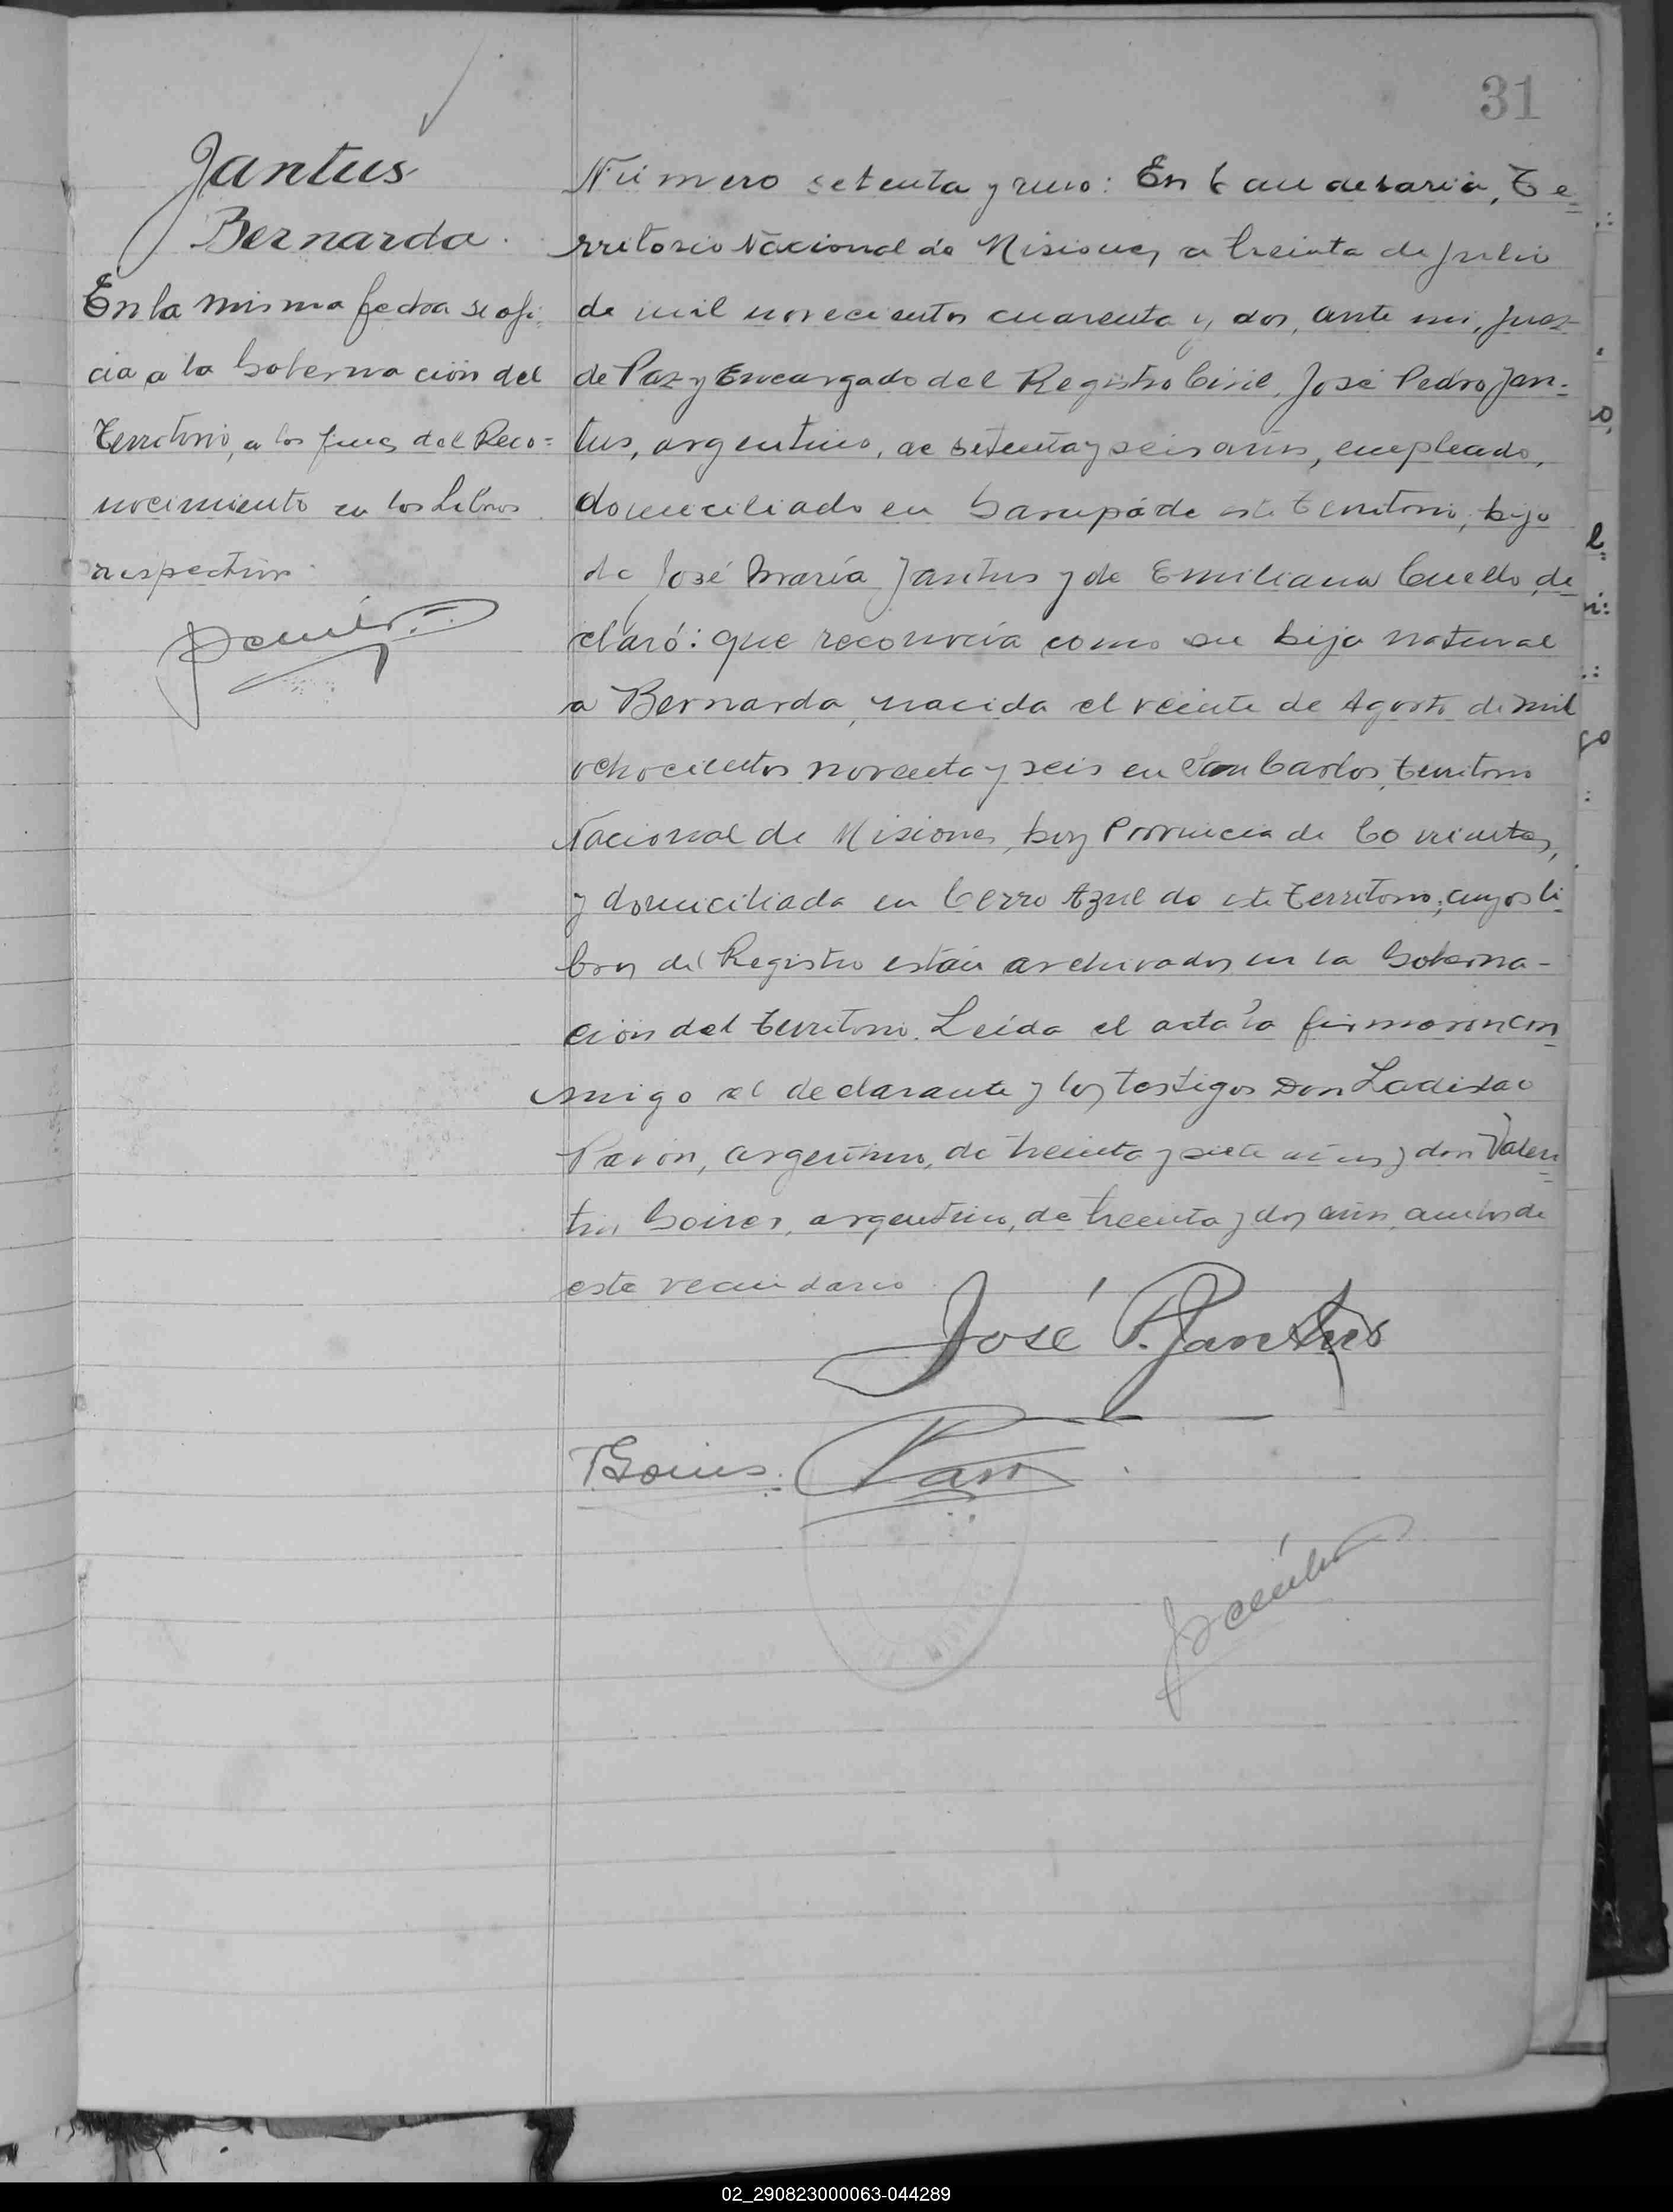 31
Jantus
Bernarda.
En la misma fecha se ofi-
cia a la Gobernación del
Territorio, a los fines del Reco=
nocimiento en los Libros
respectivos.
Número setenta y uno: En Candelaria, Te=
rritorio Nacional de Misiones, a treinta de Julio
de mil novecientos cuarenta y dos, ante mi, Juez
de Paz y Encargado del Registro Civil, José Pedro Jan=
tus, argentino, de setenta y seis años, empleado,
domiciliado en Garupá de este Territorio, hijo
de José María Jantus y de Emiliana Cuello, de
claró: que reconocía como su hija natural
a Bernarda, nacida el veinte de Agosto de mil
ochocientos noventa y seis en San Carlos, territorio
Nacional de Misiones, hoy Provincia de Corrientes,
y domiciliada en Cerro Azul de este Territorio, cuyos li
bros de Registro están archivados en la Goberna-
ción del territorio. Leída el acta la firmaron con
migo el declarante y los testigos Don Ladislao
Pavón, argentino, de treinta y siete años y don Valen
tin Goires, argentino, de treinta y dos años, ambos de
este vecindario.
José P. Jantus
02_290823000063-044289